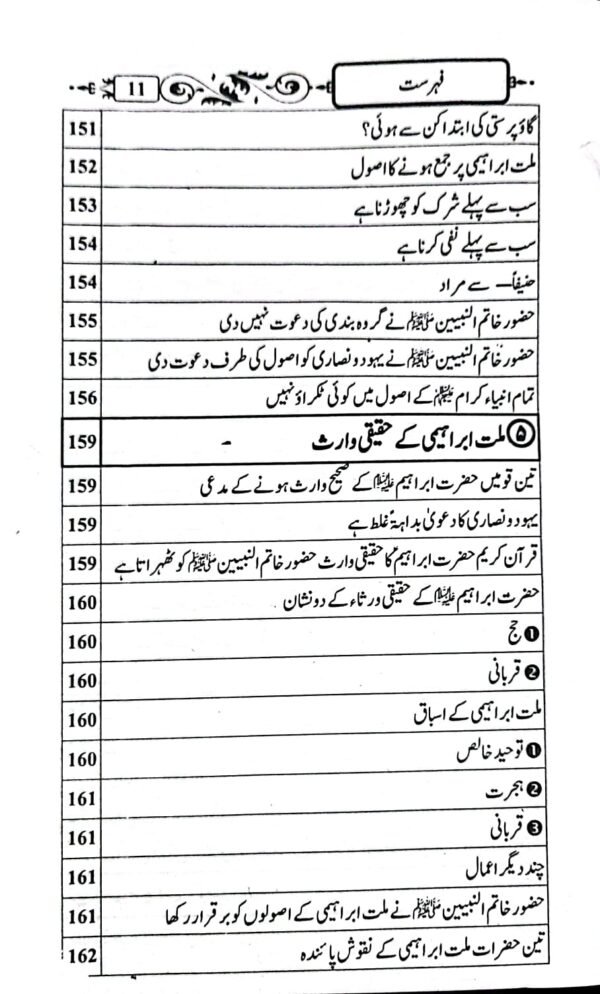 فہرست 11
گاؤ پرستی کی ابتدا کن سے ہوئی؟ 151
ملت ابراہیمی پر جمع ہونے کا اصول 152
سب سے پہلے شرک کو چھوڑنا ہے 153
سب سے پہلے نفی کرنا ہے 154
حنیفاً — سے مراد 154
حضور خاتم النبیین ﷺ نے گروہ بندی کی دعوت نہیں دی 155
حضور خاتم النبیین ﷺ نے یہود و نصاری کو اصول کی طرف دعوت دی 155
تمام انبیاء کرام علیہم السلام کے اصول میں کوئی ٹکراؤ نہیں 156
۵ ملت ابراہیمی کے حقیقی وارث - 159
تین قومیں حضرت ابراہیم علیہ السلام کے صحیح وارث ہونے کے مدعی 159
یہود و نصاری کا دعویٰ بداہۃً غلط ہے 159
قرآن کریم حضرت ابراہیم کا حقیقی وارث حضور خاتم النبیین ﷺ کو ٹھہراتا ہے 159
حضرت ابراہیم علیہ السلام کے حقیقی ورثاء کے دو نشان 160
❶ حج 160
❷ قربانی 160
ملت ابراہیمی کے اسباق 160
❶ توحید خالص 160
❷ ہجرت 161
❸ قربانی 161
چند دیگر اعمال 161
حضور خاتم النبیین ﷺ نے ملت ابراہیمی کے اصولوں کو برقرار رکھا 161
تین حضرات ملت ابراہیمی کے نقوش پائندہ 162